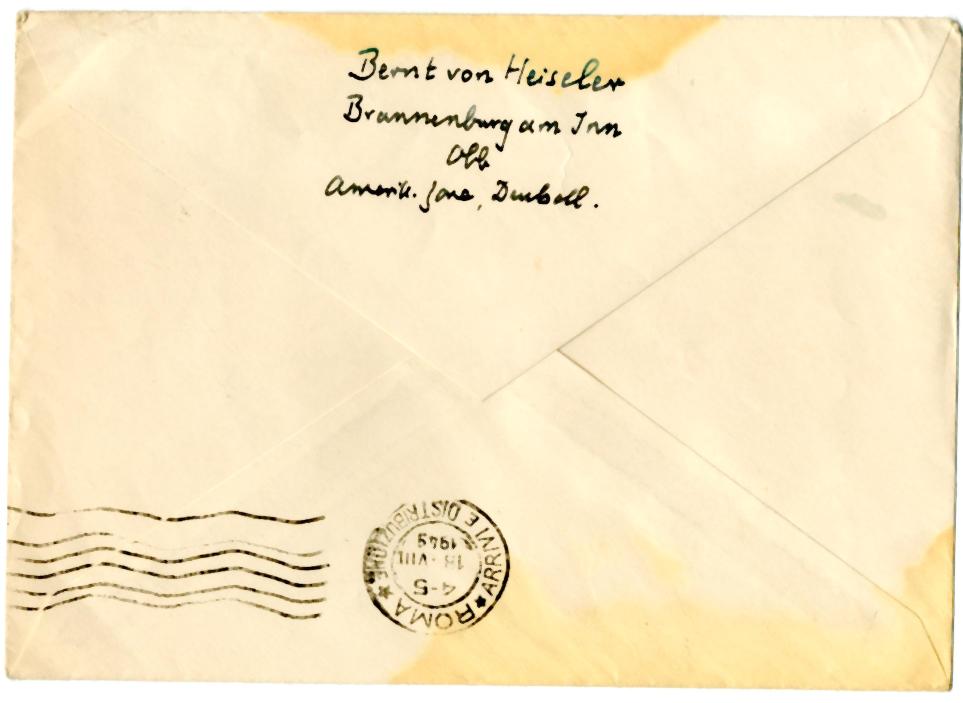 Bernt von Heiseler
Brannenburg am Inn
Obb
Amerik. Zone, Deutschl.
ROMA
★ ARRIVI E DISTRIBUZIONE ★
4-5
18·VIII
1949